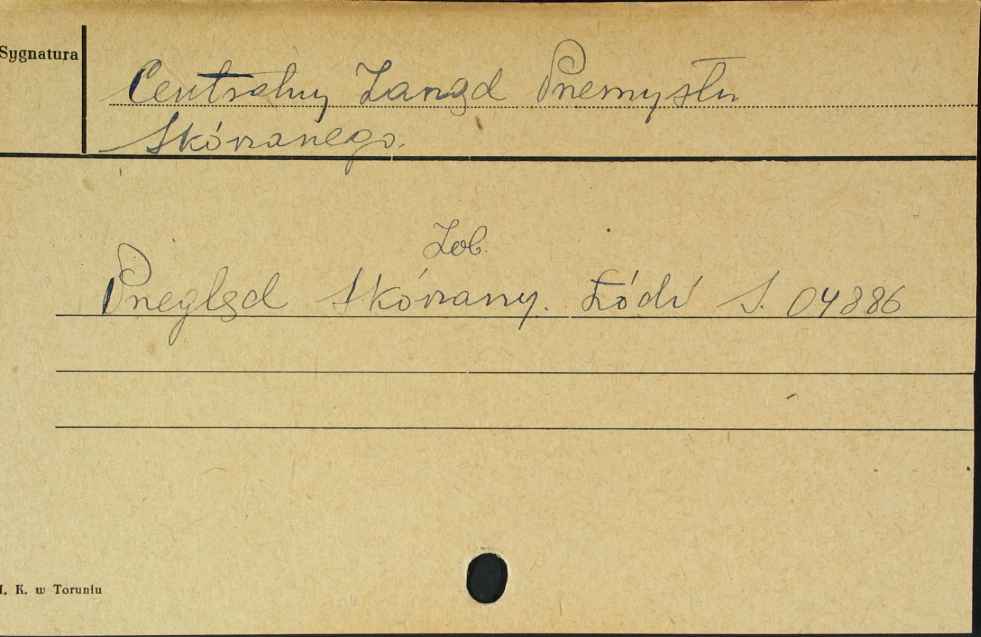 Sygnatura
Centralny Zarząd Przemysłu
Skórzanego.
Zob.
Przegląd Skórzany. Łódź S. 04886
I. K. w Toruniu